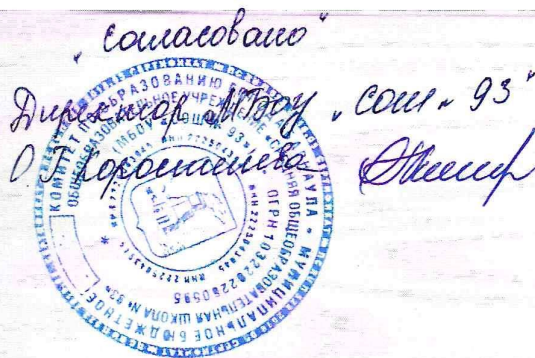 "согласовано"
Директор МБОУ "СОШ № 93"
О.Г. Коростелева
КОМИТЕТ ПО ОБРАЗОВАНИЮ Г. БАРНАУЛА * МУНИЦИПАЛЬНОЕ БЮДЖЕТНОЕ
ОБЩЕОБРАЗОВАТЕЛЬНОЕ УЧРЕЖДЕНИЕ «СРЕДНЯЯ ОБЩЕОБРАЗОВАТЕЛЬНАЯ ШКОЛА № 93»
(МБОУ «СОШ № 93»)